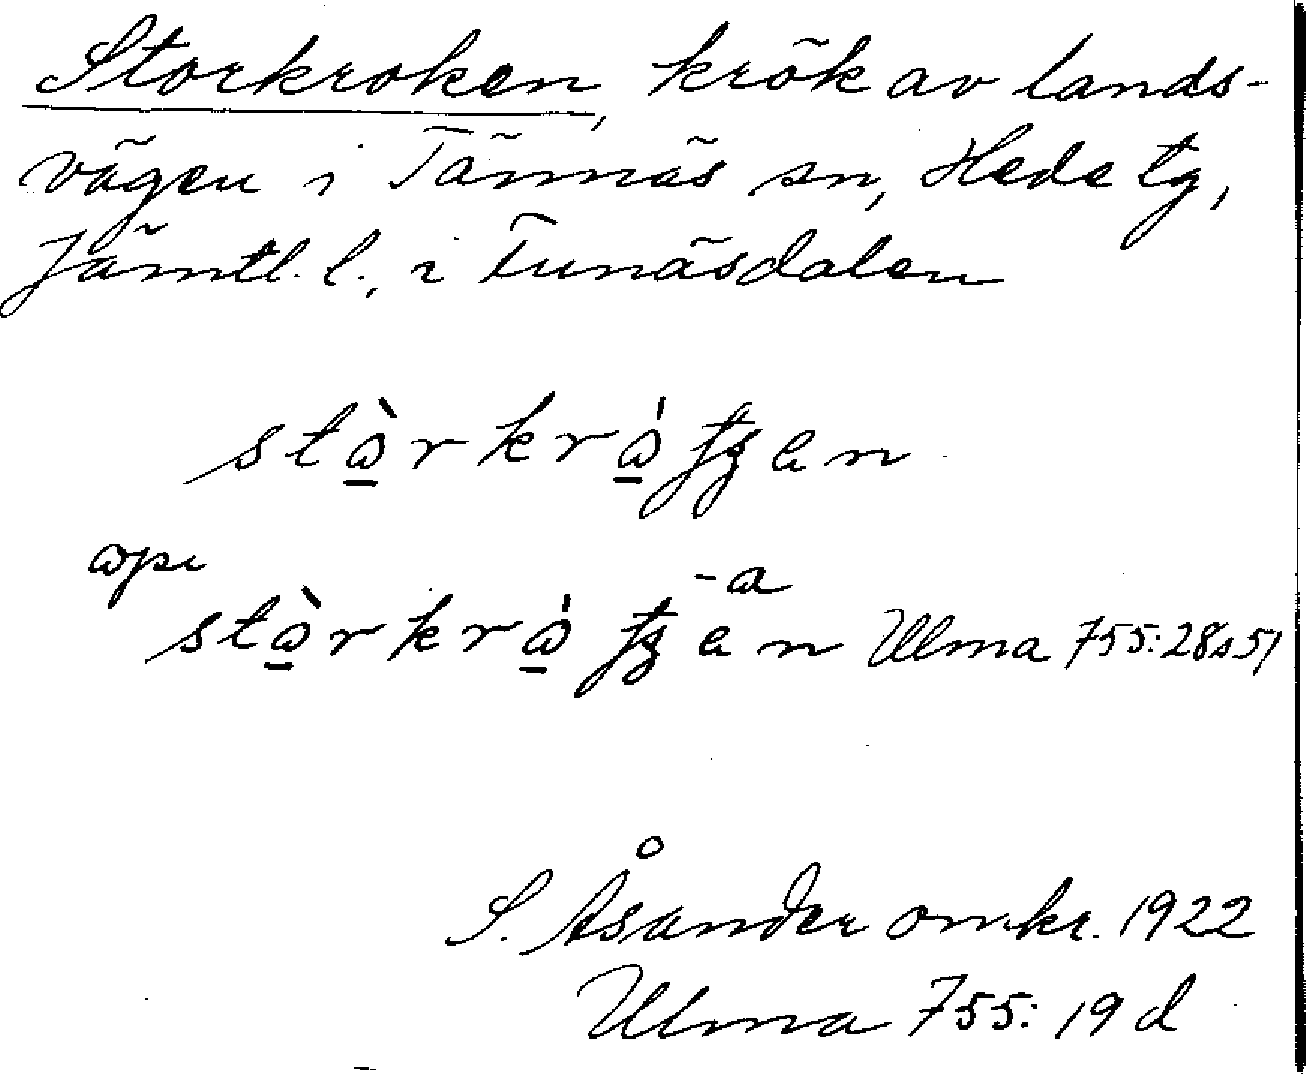 Storkroken, krök av lands-
vägen i Tännäs sn, Hede tg,
Jämtl. l., i Funäsdalen
-a
Ulma 755:28 s 51
S. Åsander omkr. 1922
Ulma 755: 19 d